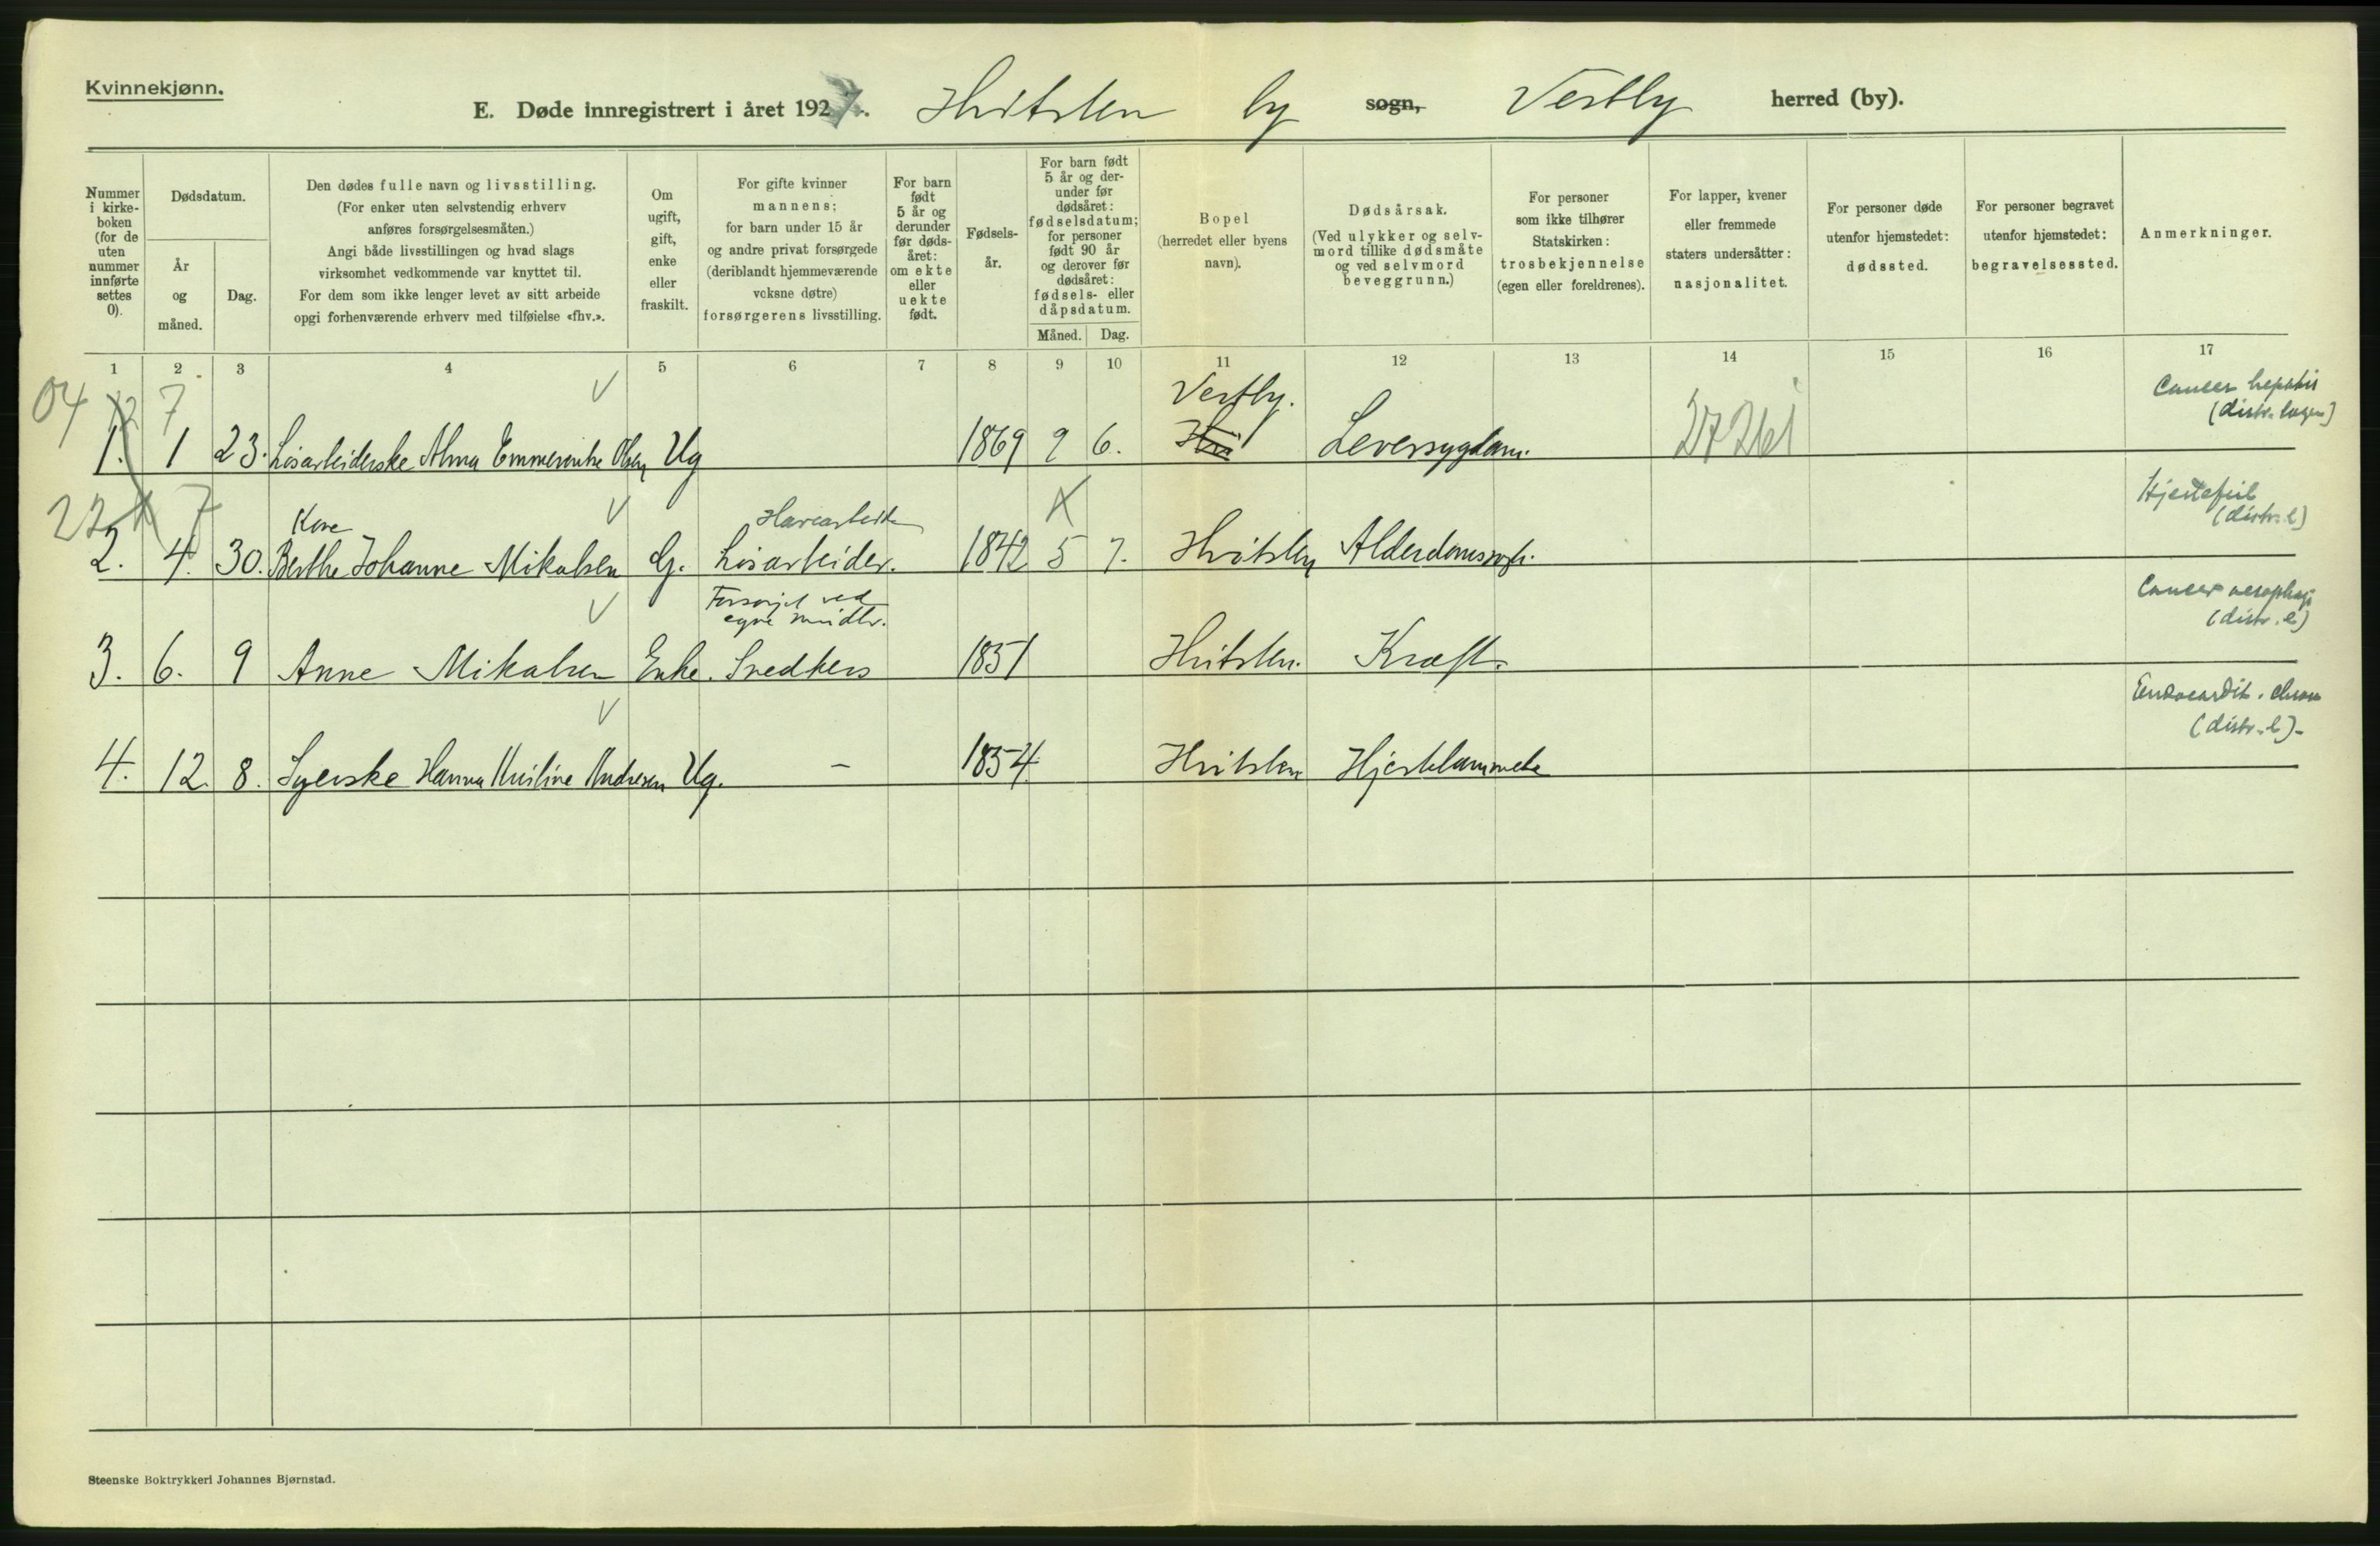 Kvinnekjønn.
E. Døde innregistrert i året 1927. Hvitsten by sogn, Vestby herred (by).
Nummer i kirke-boken (for de uten nummer innførte settes 0).
Dødsdatum.
År og måned.
Dag.
Den dødes fulle navn og livsstilling.
(For enker uten selvstendig erhverv
anføres forsørgelsesmåten.)
Angi både livsstillingen og hvad slags
virksomhet vedkommende var knyttet til.
For dem som ikke lenger levet av sitt arbeide
opgi forhenværende erhverv med tilføielse «fhv.».
Om
ugift,
gift,
enke
eller
fraskilt.
For gifte kvinner
mannens;
for barn under 15 år
og andre privat forsørgede
(deriblandt hjemmeværende
voksne døtre)
forsørgerens livsstilling.
For barn
født
5 år og
derunder
før døds-
året:
om ekte
eller
uekte
født.
Fødsels-
år.
For barn født
5 år og der-
under før
dødsåret:
fødselsdatum;
for personer
født 90 år
og derover før
dødsåret:
fødsels- eller
dåpsdatum.
Måned. Dag.
Bopel
(herredet eller byens
navn).
Dødsårsak.
(Ved ulykker og selv-
mord tillike dødsmåte
og ved selvmord
beveggrunn.)
For personer
som ikke tilhører
Statskirken:
trosbekjennelse
(egen eller foreldrenes).
For lapper, kvener
eller fremmede
staters undersåtter:
nasjonalitet.
For personer døde
utenfor hjemstedet:
dødssted.
For personer begravet
utenfor hjemstedet:
begravelsessted.
Anmerkninger.
1 2 3 4 5 6 7 8 9 10 11 12 13 14 15 16 17
04 7 Vestby. Cancer hepatis
(distr. lægen)
1. 1 23. Løsarbeiderske Alma Emmerentse Olsen Ug 1869 9 6. Hvi Leversygdom.
Kone Havearbeider Hjertefeil
(distr. l)
2. 4. 30. Berthe Johanne Mikalsen G. Løsarbeider. 1842 5 7. Hvitsten
Forsørget ved
egne midler. Cancer oesophagi
(distr. l)
3. 6. 9 Anne Mikalsen Enke. Snedkers 1851 Hvitsten. Kræft.
Endocardit. chron
(distr. l)
4. 12. 8. Syerske Hanna Kristine Andresen Ug. – 1854. Hvitsten Hjerteslammelse
Steenske Boktrykkeri Johannes Bjørnstad.